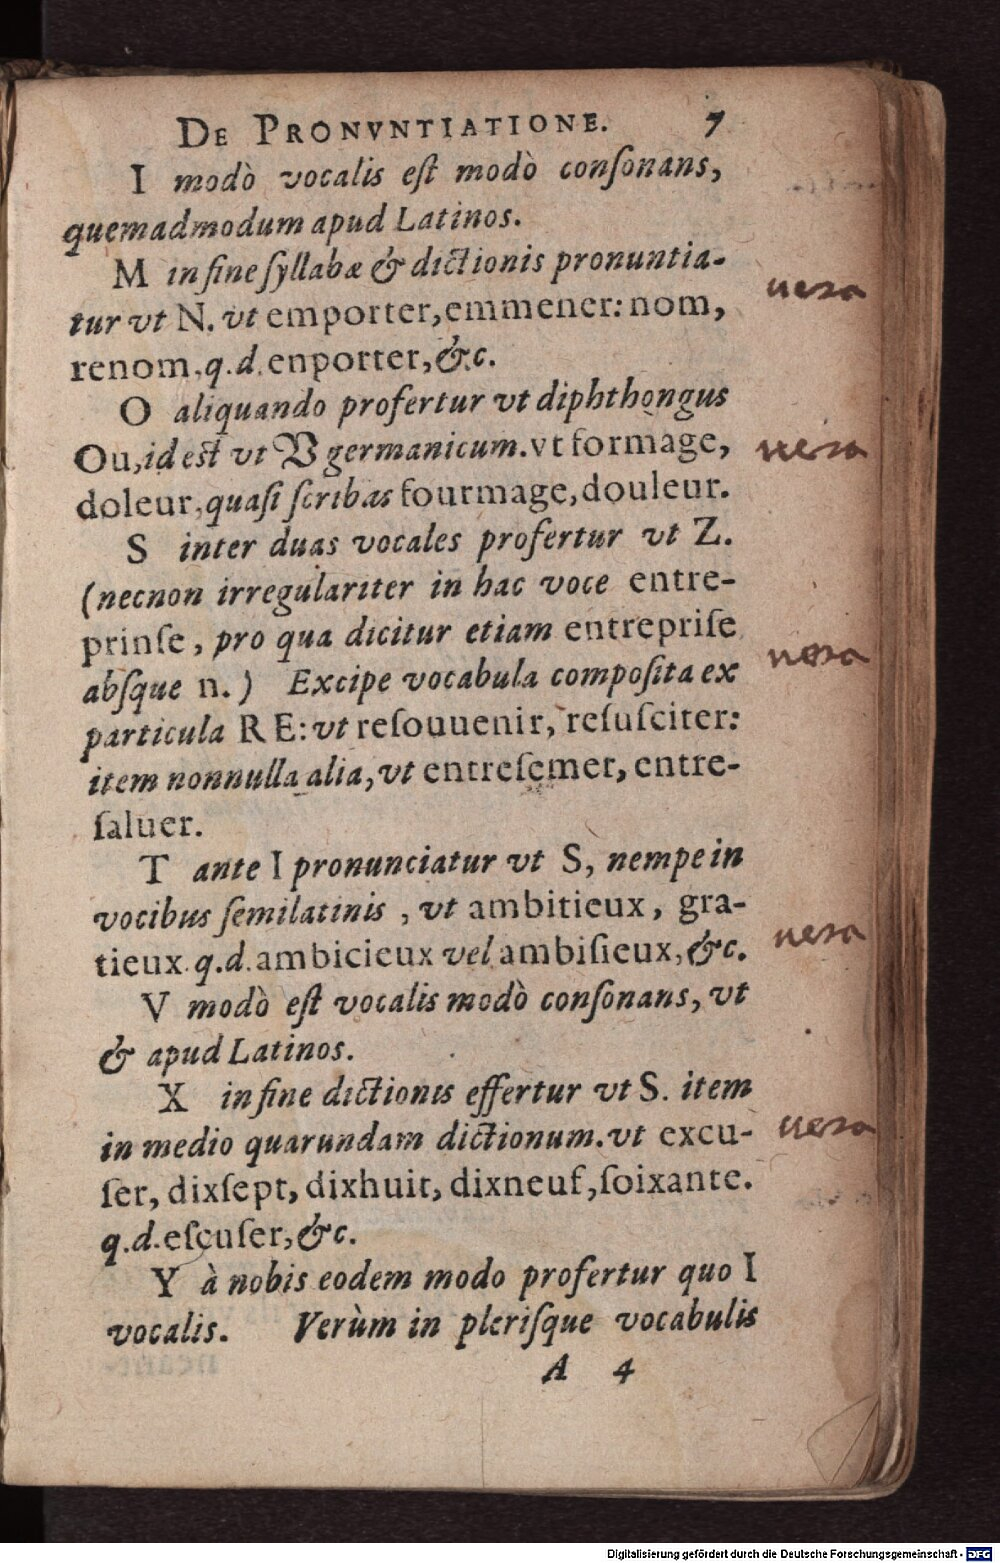 DE PRONVNTIATIONE. 7
I modò vocalis eſt modò conſonans,
quemadmodum apud Latinos.
M in fine ſyllabæ & dictionis pronuntia-
tur vt N. vt emporter, emmener: nom,
renom, q.d. enporter, &c.
O aliquando profertur vt diphthongus
Ou, id est vt V germanicum. vt formage,
doleur, quaſi ſcribas fourmage, douleur.
S inter duas vocales profertur vt Z.
(necnon irregulariter in hac voce entre-
prinſe, pro qua dicitur etiam entrepriſe
abſque n.) Excipe vocabula compoſita ex
particula RE: vt reſouuenir, reſuſciter:
item nonnulla alia, vt entreſemer, entre-
ſaluer.
T ante I pronunciatur vt S, nempe in
vocibus ſemilatinis, vt ambitieux, gra-
tieux. q.d. ambicieux vel ambiſieux, &c.
V modò eſt vocalis modò conſonans, vt
& apud Latinos.
X in fine dictionis effertur vt S. item
in medio quarundam dictionum. vt excu-
ſer, dixſept, dixhuit, dixneuf, ſoixante.
q.d. eſcuſer, &c.
Y à nobis eodem modo profertur quo I
vocalis. Verùm in pleriſque vocabulis
A 4
vera
vera
vera
vera
vera
Digitalisierung gefördert durch die Deutsche Forschungsgemeinschaft - DFG